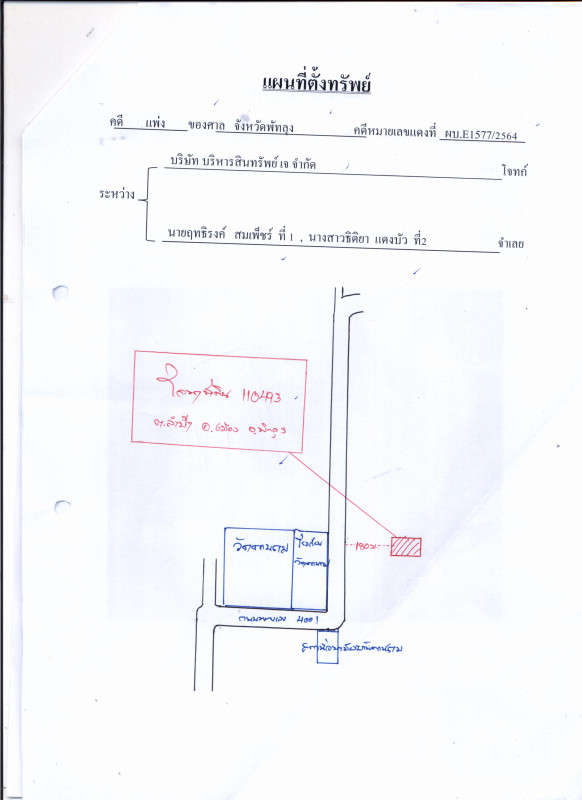 แผนที่ตั้งทรัพย์
คดี แพ่ง ของศาล จังหวัดพัทลุง คดีหมายเลขแดงที่ ผบ.E1577/2564
บริษัท บริหารสินทรัพย์ เจ จำกัด โจทก์
ระหว่าง
นายฤทธิรงค์ สมเพ็ชร์ ที่ 1 , นางสาวธิติยา แดงบัว ที่2 จำเลย
โฉนดที่ดิน 110493
ต.ลำปำ อ.เมือง จ.พัทลุง
180ม.
โรงเรียน
4001